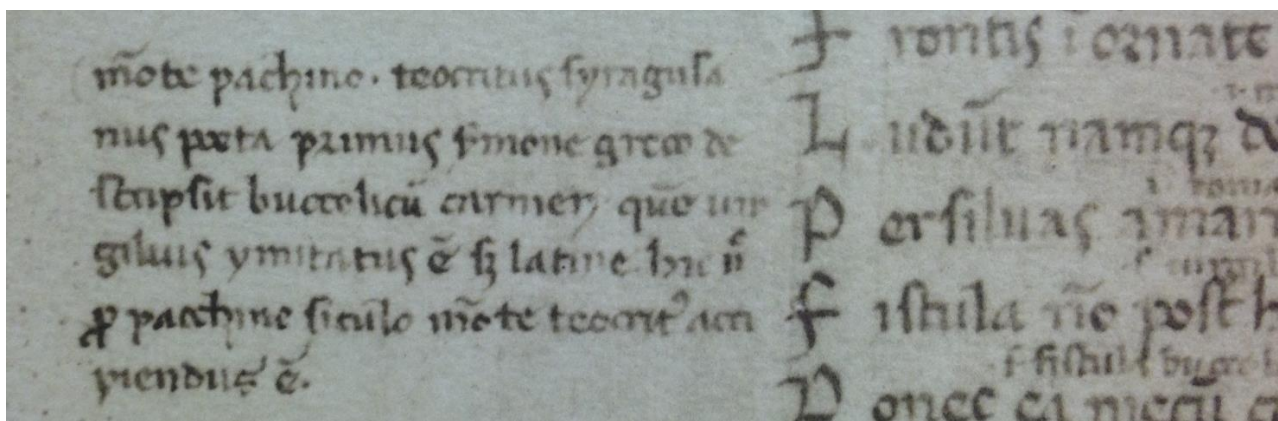 mōte pachino. teocritus syragusa
nus poeta primus s̄mone greco de
scripsit buccolicū carmen quē uir
gilius ymitatus ē sꝫ latine hic n̄
ꝓ pacchino siculo mōte teocritꝰ acci
piendus ē.
F rontis i ornate
L udūt namqꝫ
P er siluas
F istula nō post h
fistula
D onec ea mecū